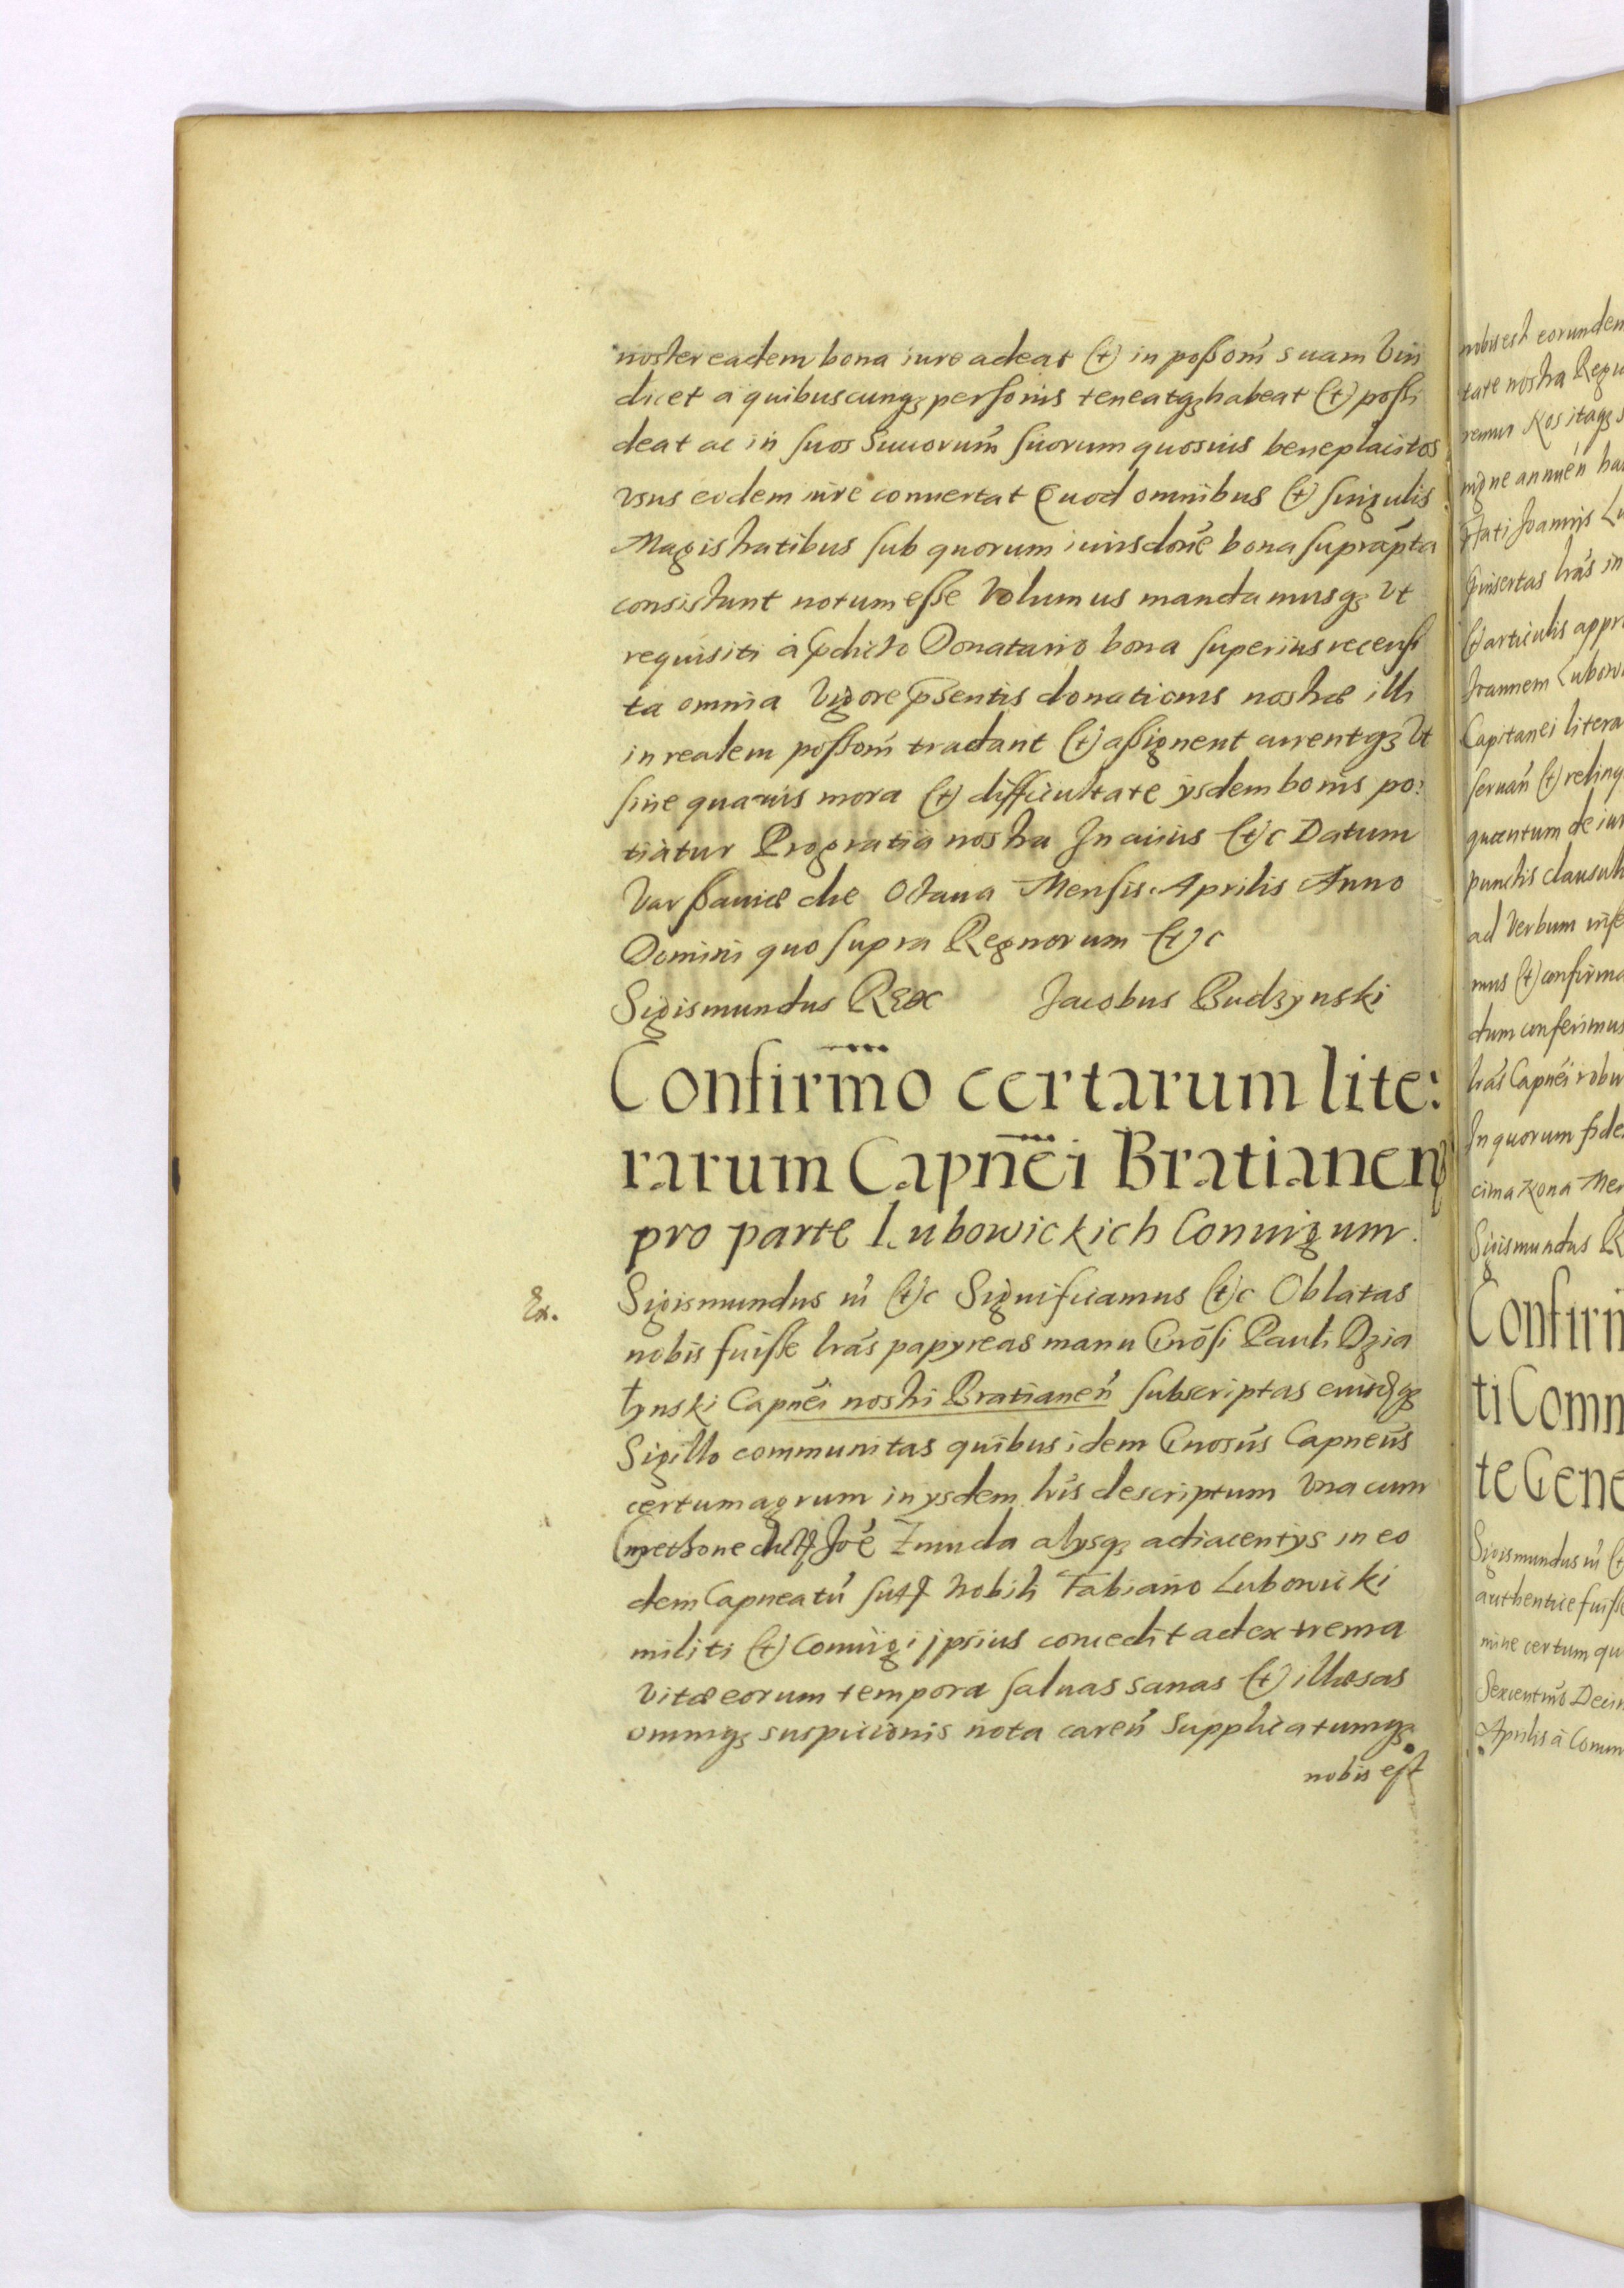 noster eadem bona iure adeat (et) in poßom̃ suam Vin
dicet a quibuscunqꝫ personis teneatqꝫ habeat (et) possi
deat ac in suos Succorum̃ suorum quosuis beneplacitos
vsus eodem iure conuertat Quod omnibus (et) singulis
Magistratibus sub quorum iurisdone̅ bona supranp̃ta
consistunt notum esse Volumus mandamusqꝫ Vt
requisiti à p̱dicto Donatario bona superius recensi
ta omnia Vigore p̱sentis donationis nostræ illi
in realem possom̃ tradant (et) aßignent curentqꝫ Vt
sine quauis mora (et) difficultate ysdem bonis po:
tiatur Pro gratia nostra In cuius (et)c Datum
Varßauiæ die Octaua Mensis Aprilis Anno
Domini quo supra Regnorum (et)c
Sigismundus Rex Jacobus Budzynski
Confirm̃o certarum lite:
rarum Capne̅i Bratianen̄
pro parte Lubowickich Coniugum.
Ex.
Sigismundus 3ũ (et)c Significamus (et)c Oblatas
nobis fuisse lrãs papyreas manu Gnõsi Pauli Dzia
łynski Capnẽi nostri Bratianeñ subscriptas eiusdqꝫ
Sigillo communitas quibus idem Gnosũs Capneũs
certum agrum in ysdem lrĩs descriptum Vna cum
Cmethone dicto Joẽ Zmuda alysqꝫ adiacentys in eo
dem Capneatũ sitꝭ Nobili Fabiano Lubowicki
militi (et) Coniugi ipsius concedit ad extrema
Vitæ eorum tempora saluas sanas (et) illæsas
omniqꝫ suspicionis nota careñ Supplicatumqꝫ
nobis est
nobis est eorundem
tate nostra Regia
remur Nos itaqꝫ s
articulis appro
Joannem Lubow
Capitanei litera
seruañ (et) relinq
quantum de iur
punctis clausuli
ad Verbum inse
mus (et) confirma
dum conferimus
lrãs Capnẽi robu
In quorum fide
cima Nona Me
Sigismundus R
Confirm
ti Comm
te Gene
Sigismundus 3ũ (et
authentice fuiss
mine certum qu
Sexcentm̃o Decim
Aprilis à Comm